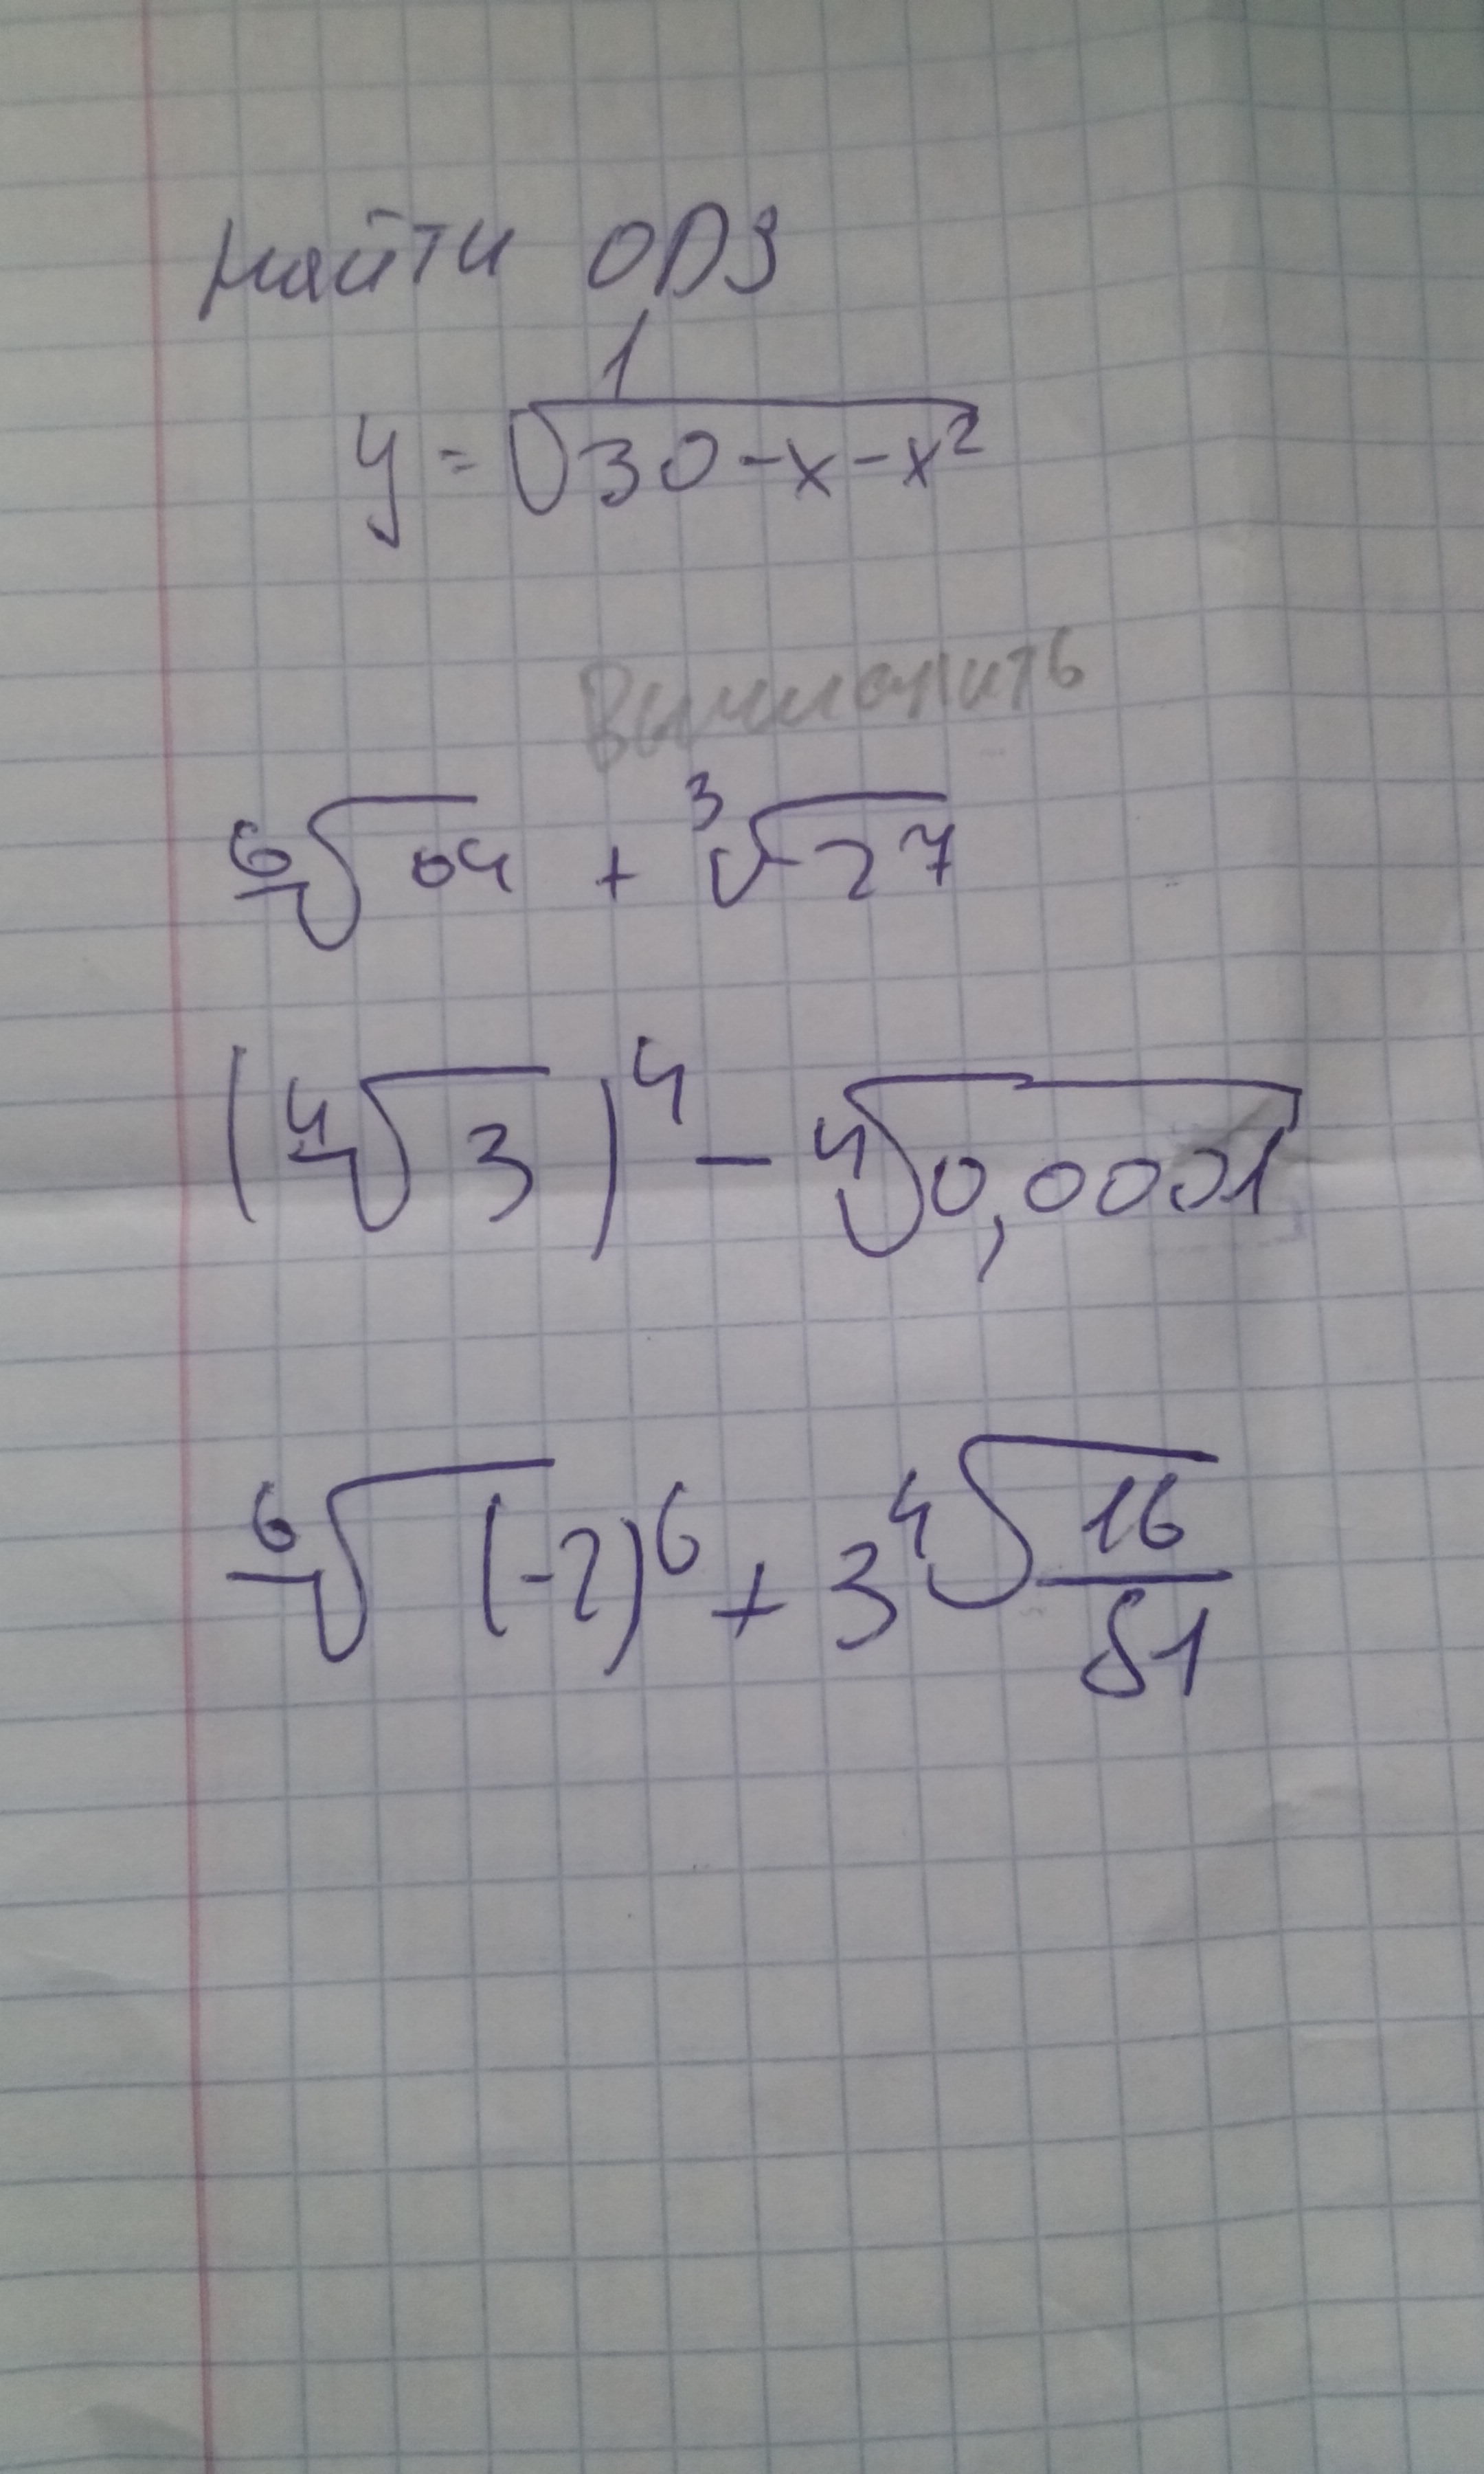 Найти ОDЗ
y = 1/√(30-x-x²)
Вычислить
⁶√64 + ³√-27
(⁴√3)⁴ - ⁴√0,0001
⁶√(-2)⁶ + 3⁴√16/81